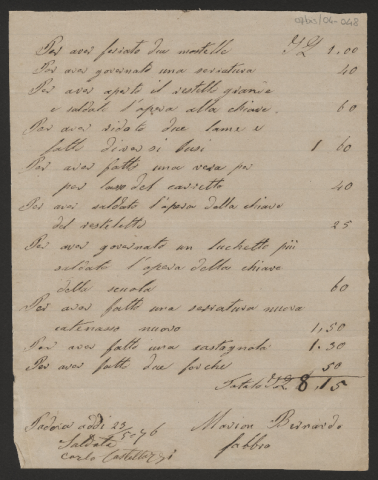 Per aver feriato due mastelle £ 1.00
Per aver governato una seriatura 40
Per aver aperto il restello grande
e saldato l'opera alla chiave. 60
Per aver ridoto due lame e
fatti diversi busi 1 60
Per aver fatto una vera per
per l'asse del carretto 40
Per aver saldato l'opera della chiave
del restelletto 25
Per aver governato un luchetto più
saldato l'opera della chiave
della scuola 60
Per aver fatto una seriatura nuova
catenasso nuovo 1,50
Per aver fatto una castagnola 1.30
Per aver fatti due forche 50
Totale £ 8.15
Padova addì 23/5-76 Marion Bernardo
Saldata fabbro
Carlo